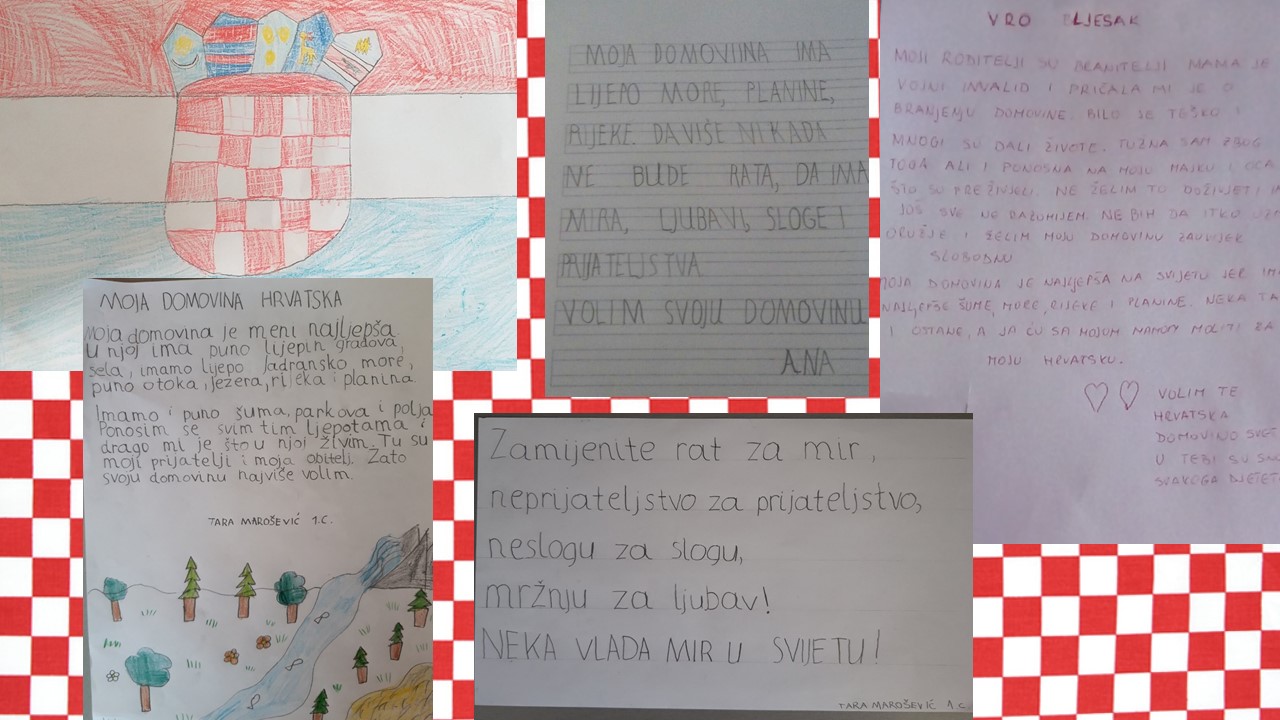 MOJA DOMOVINA HRVATSKA
Moja domovina je meni najljepša.
U njoj ima puno lijepih gradova,
sela, imamo lijepo Jadransko more,
puno otoka, jezera, rijeka i planina.
Imamo i puno šuma, parkova i polja
Ponosim se svim tim ljepotama i
drago mi je što u njoj živim. Tu su
moji prijatelji i moja obitelj. Zato
svoju domovinu najviše volim.
TARA MAROŠEVIĆ 1.C.
MOJA DOMOVIINA IMA
LIJEPO MORE, PLANINE,
RIJEKE. DA VIŠE NIKADA
NE BUDE RATA, DA IMA
MIRA, LJUBAVI, SLOGE I
PRIJATELJSTVA
VOLIM SVOJU DOMOVINU
ANA
Zamijenite rat za mir,
neprijateljstvo za prijateljstvo,
neslogu za slogu,
mržnju za ljubav!
NEKA VLADA MIR U SVIJETU!
TARA MAROŠEVIĆ 1.C
VRO BLJESAK
MOJI RODITELJI SU BRANITELJI MAMA JE
VOJNI INVALID I PRIČALA MI JE O
BRANJENJU DOMOVINE. BILO JE TEŠKO I
MNOGI SU DALI ŽIVOTE. TUŽNA SAM ZBOG
TOGA ALI I PONOSNA NA MOJU MAJKU I OCA
ŠTO SU PREŽIVJELI. NE ŽELIM TO DOŽIVJETI
JOŠ SVE NE RAZUMIJEM. NE BIH DA ITKO
ORUŽJE I ŽELIM MOJU DOMOVINU ZAUVIJEK
SLOBODNU
MOJA DOMOVINA JE NAJLJEPŠA NA SVIJETU JER
NAJLJEPŠE ŠUME, MORE, RIJEKE I PLANINE. NEKA
I OSTANE, A JA ĆU SA MOJOM MAMOM MOLITI ZA
MOJU HRVATSKU.
VOLIM TE
HRVATSKA
DOMOVINO
U TEBI SU
SVAKOGA DJETETA